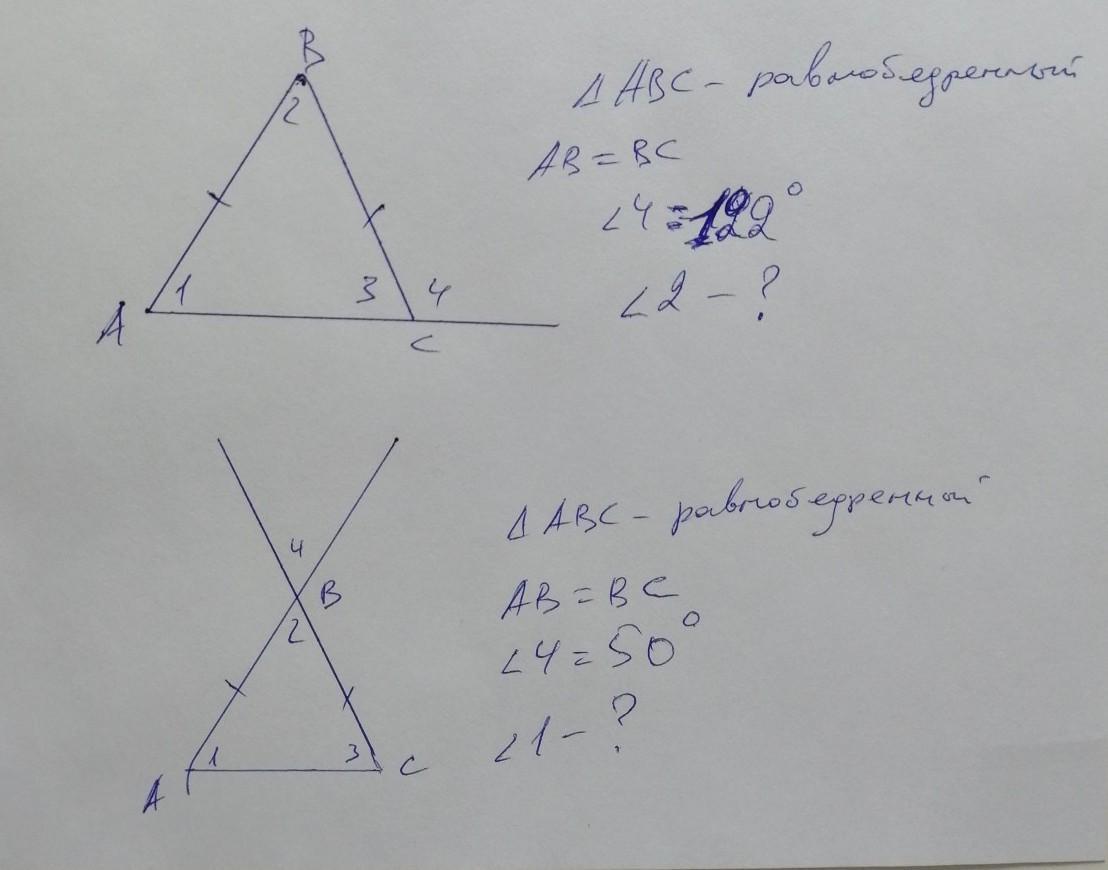 B
2
1
3
4
A
C
Δ ABC - равнобедренный
AB = BC
∠4 = 122°
∠2 - ?
4
B
2
1
3
A
C
Δ ABC - равнобедренный
AB = BC
∠4 = 50°
∠1 - ?